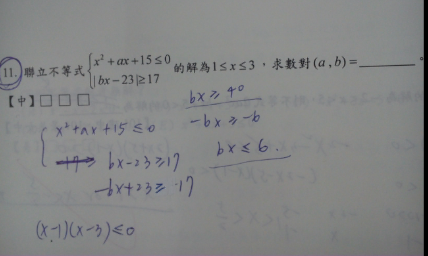 11. 聯立不等式{x²+ax+15≤0 |bx-23|≥17 的解為1≤x≤3,求數對(a,b)=______。
【中】□□□
bx≥40
x²+ax+15≤0
-bx≥-6
bx-23≥17
bx≤6.
-bx+23≥17
(x-1)(x-3)≤0